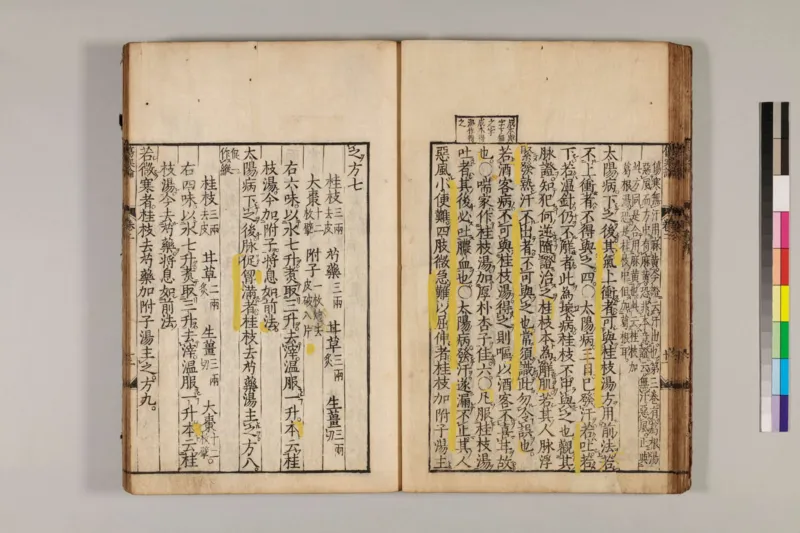 傷寒無汗用麻黃今證云汗出惡風而方中有麻黃恐非本意也第三卷有葛根湯證云無汗惡風正與
此方同是合用麻黃也此云桂枝加
葛根湯恐是桂枝中但加葛根耳
太陽病下之後其氣上衝者可與桂枝湯方用前法若
不上衝者不得與之四○太陽病三日已發汗若吐若
下若溫針仍不解者此為壞病桂枝不中與之也觀其
脉證知犯何逆隨證治之桂枝本為解肌若其人脉浮
緊發熱汗不出者不可與之也常須識此勿令誤也
若酒客病不可與桂枝湯得之則嘔以酒客不喜甘故
也○喘家作桂枝湯加厚朴杏子佳六○凡服桂枝湯
吐者其後必吐膿血也○太陽病發汗遂漏不止其人
惡風小便難四肢微急難以屈伸者桂枝加附子湯主
之方七
桂枝三兩去皮 芍藥三兩 甘草三兩炙 生薑三兩切
大棗十二枚擘 附子一枚炮去皮破八片
右六味以水七升煑取三升去滓溫服一升本云桂
枝湯今加附子將息如前法
太陽病下之後脉促胷滿者桂枝去芍藥湯主之方八
促一作縱
桂枝三兩去皮 甘草二兩炙 生薑三兩切 大棗十二枚擘
右四味以水七升煑取三升去滓溫服一升本云桂
枝湯今去芍藥將息如前法
若微寒者桂枝去芍藥加附子湯主之方九